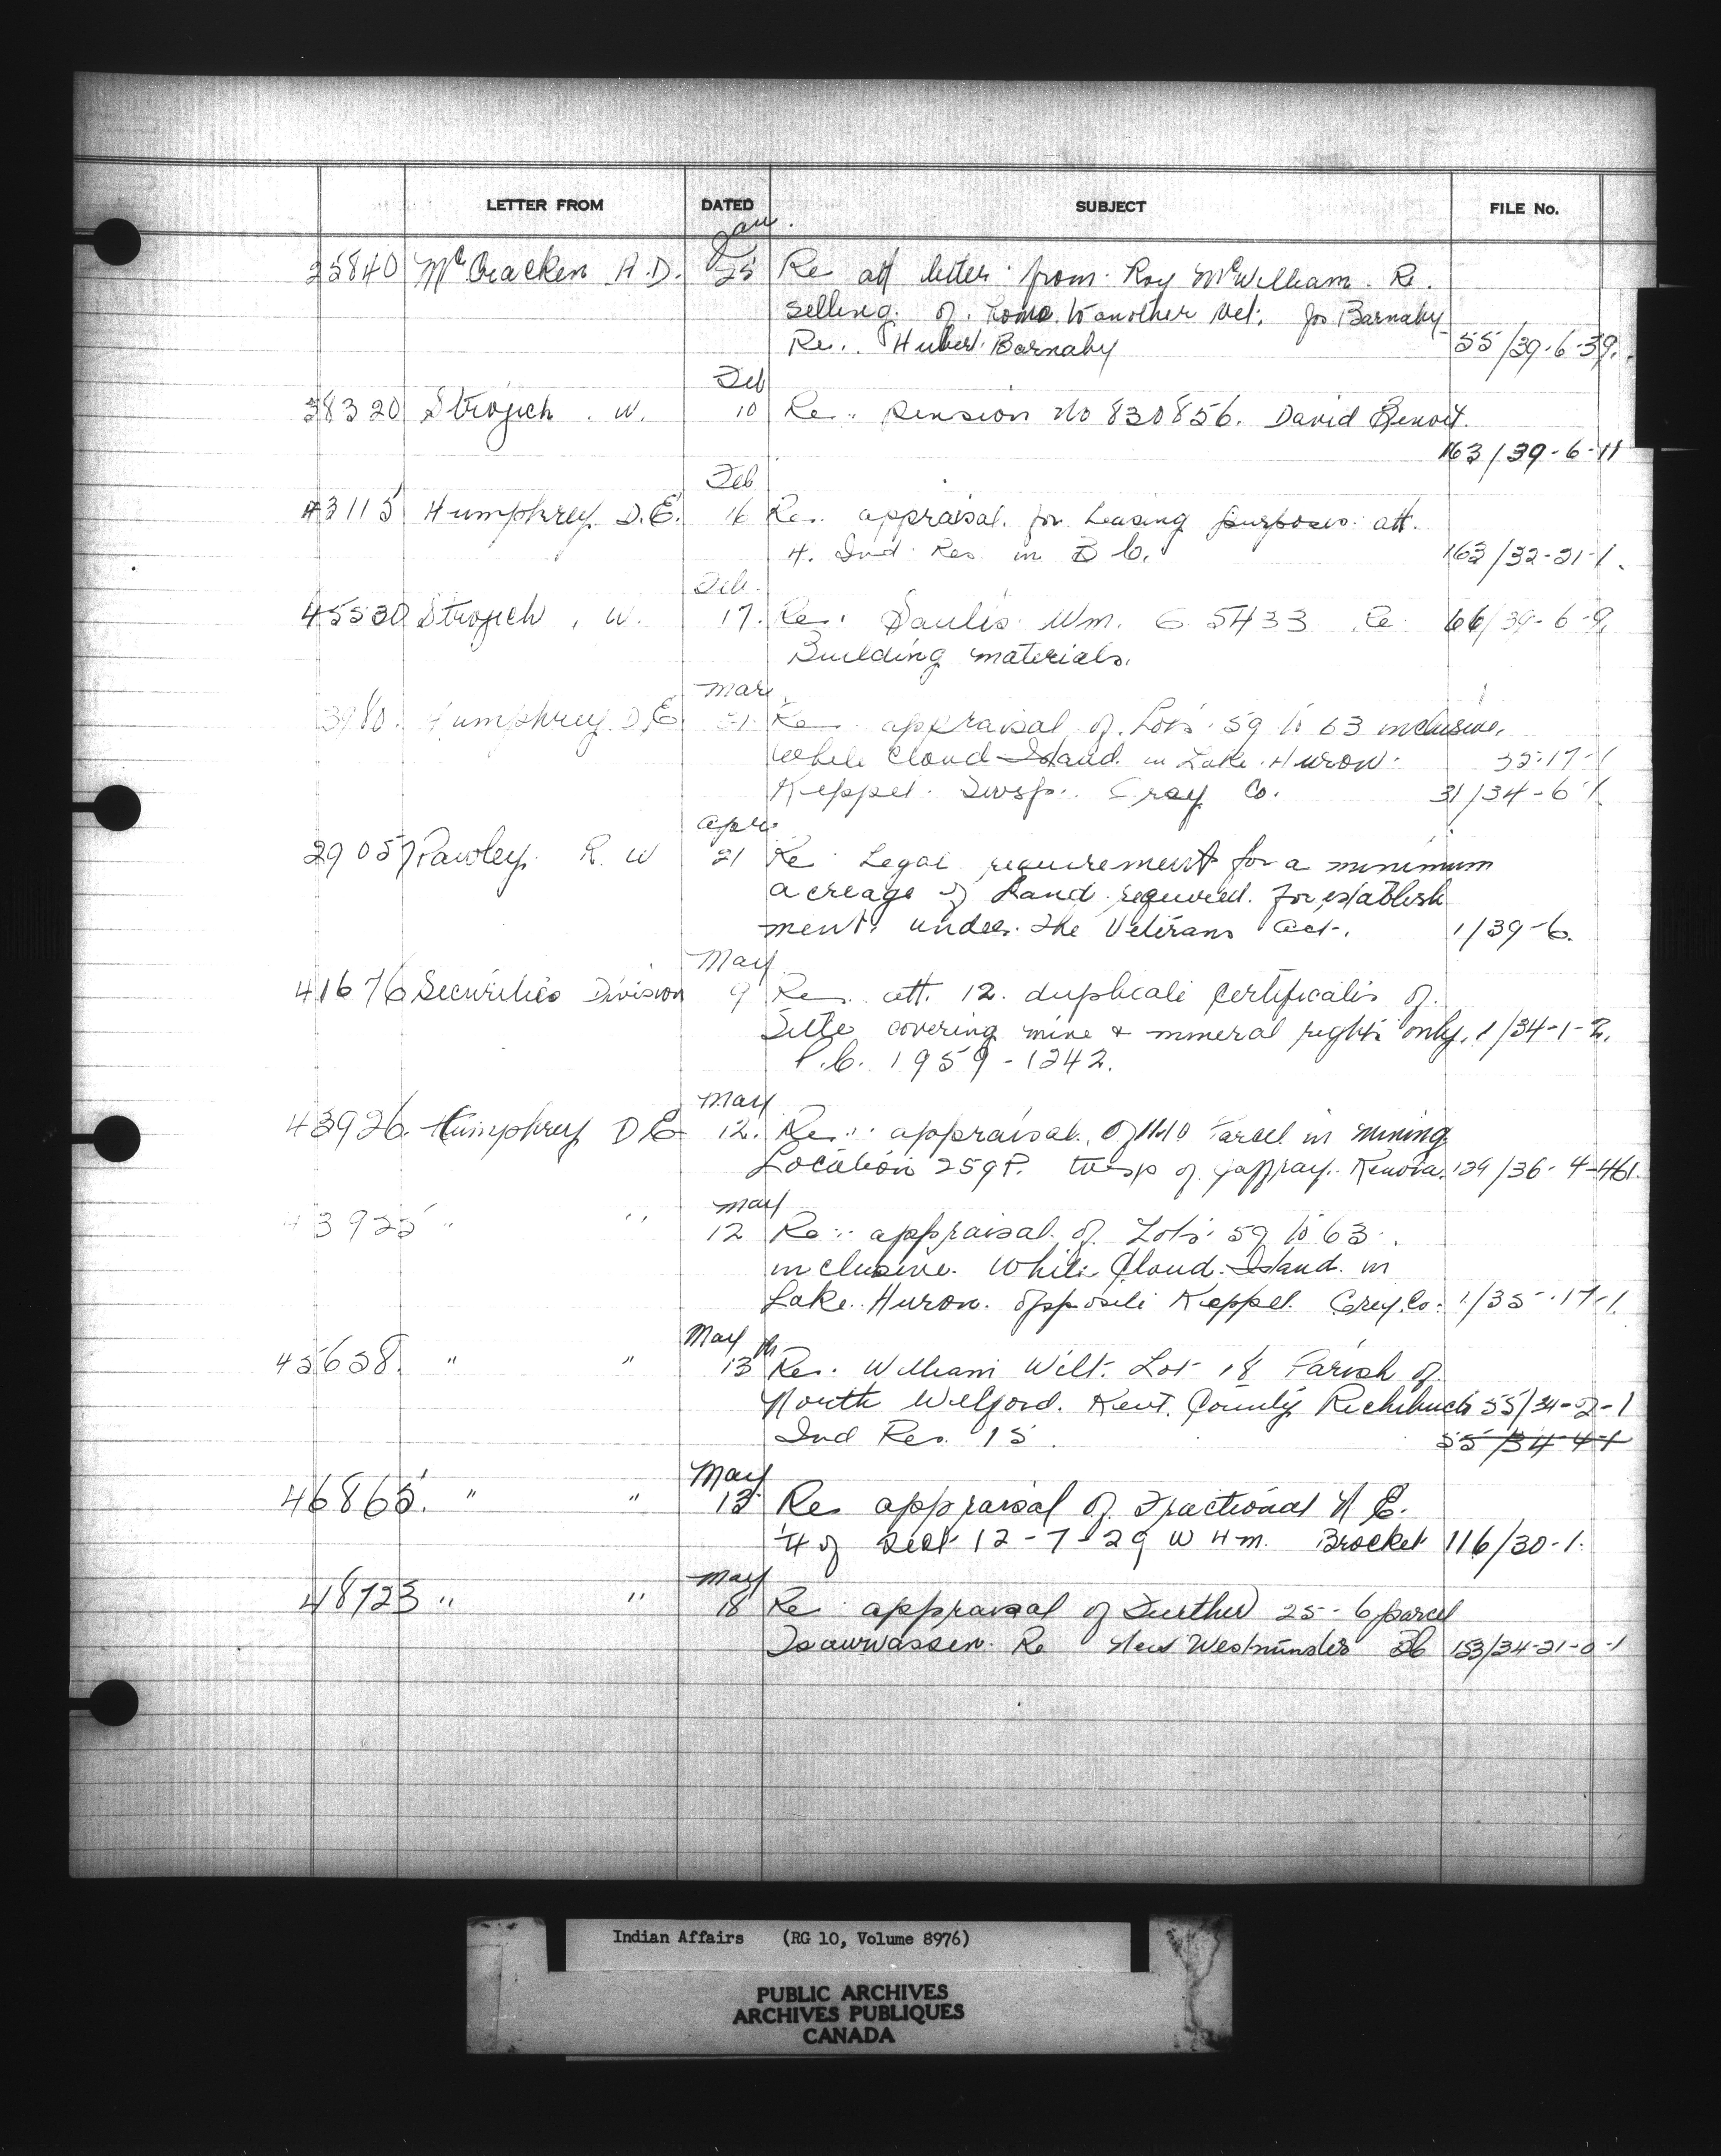 LETTER FROM DATED SUBJECT FILE No.
Jan.
25840 McCracken H.D. 25 Re att letter from Roy McWilliam. Re.
selling of home to another Vet. Jos Barnaby
Re. Hubert Barnaby 55/39-6-39.
Feb
38320 Strojich, W. 10 Re. Pension No 830856. David Benoit.
163/39-6-11
Feb
43115 Humphrey D.E. 16 Re. appraisal for Leasing purposes att.
4. Ind Res in B C. 163/32-21-1.
Feb.
45530 Strojich, W. 17. Re. Saulis Wm. G 5433 Re 66/39-6-9.
Building materials.
Mar.
3980. Humphrey D.E 31 Re appraisal of Lots 59 to 63 inclusive.
White Cloud Island in Lake Huron. 35-17-1
Keppel Twsp. Grey Co. 31/34-6-1
Apr.
29057 Pawley R. W 21 Re Legal requirement for a minimum
acreage of Land required for establish
ment under the Veterans Act. 1/39-6.
May
41676 Securities Division 9 Re. att. 12. duplicate certificates of
Title covering mine & mineral rights only. 1/34-1-2.
P.C. 1959-1242.
May
43926. Humphrey D E 12. Re. appraisal of Parcel in mining
Location 259P. twsp of Jaffray. Kenora. 129/36-4-461.
May
43925 " " 12 Re. appraisal of Lots 59 to 63.
inclusive. White Cloud Island in
Lake Huron. opposite Keppel Grey Co. 1/35-17-1.
May
45658. " " 13 Re. William Wilt. Lot 18 Parish of
North Welford. Kent County Richibucto 55/34-2-1
Ind Res. 15. 55/34-4-1
May
46865. " " 13 Re appraisal of Fractional N E.
1/4 of Sect 12-7-29 W 4 m. Brocket 116/30-1.
May
48723 " " 18 Re appraisal of Further 25-6 parcel
Tsawwassen. Re New Westminster BC 153/34-21-0-1
Indian Affairs (RG 10, Volume 8976)
PUBLIC ARCHIVES
ARCHIVES PUBLIQUES
CANADA